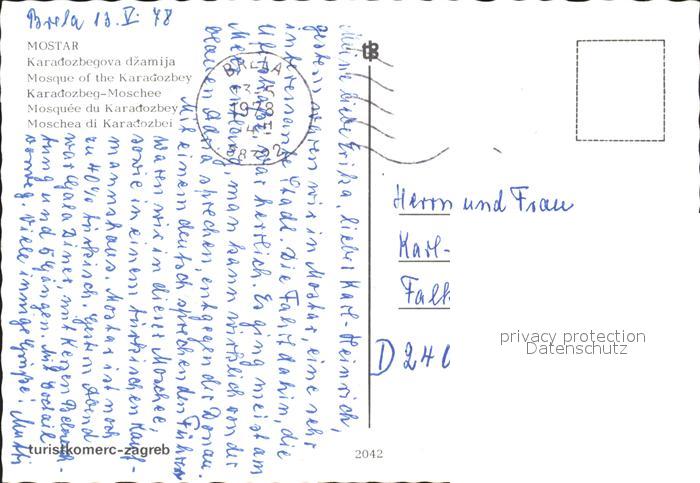 Brela 13. V. 78
MOSTAR
Karađozbegova džamija
Mosque of the Karađozbey
Karađozbeg-Moschee
Mosquée du Karađozbey
Moschea di Karađozbei
Meine liebe Erika, lieber Karl-Heinrich,
gestern waren wir in Mostar, eine sehr
interessante Stadt. Die Fahrt dahin, die
war herrlich. Es ging meist am
Meer entlang, man kann wirklich von der
blauen Adria sprechen, entgegen der Donau.
Mit einem deutsch sprechenden Führer
waren wir in dieser Moschee,
sowie in einem türkischen Kauf-
mannshaus. Mostar ist noch
zu 40% türkisch. Gestern Abend
war Gala Diner, mit Kerzen Beleuch-
tung und 5 Gängen. Mit Coctail
vorweg. Viele innige Grüße! Mutti
turistkomerc-zagreb
tz
BRELA
13-5
1978
58322
2042
Herrn und Frau
Karl-
Falk
D 240
privacy protection
Datenschutz